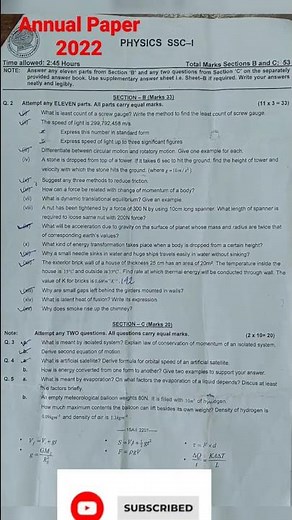 Annual Paper
2022
PHYSICS SSC–I
Time allowed: 2:45 Hours
Total Marks Sections B and C: 53
NOTE: Answer any eleven parts from Section 'B' and any two questions from Section 'C' on the separately
provided answer book. Use supplementary answer sheet i.e. Sheet–B if required. Write your answers
neatly and legibly.
SECTION – B (Marks 33)
Q. 2 Attempt any ELEVEN parts. All parts carry equal marks. (11 x 3 = 33)
What is least count of a screw gauge? Write the method to find the least count of screw gauge.
The speed of light is 299,792,458 m/s
Express this number in standard form
Express speed of light up to three significant figures
Differentiate between circular motion and rotatory motion. Give one example for each.
(iv) A stone is dropped from a tower. If it takes 6 sec to hit the ground, find the height of tower and
velocity with which the stone hits the ground.
Suggest any three methods to reduce friction.
How can a force be related with change of momentum of a body?
(vii) What is dynamic translational equilibrium? Give an example.
(viii) A nut has been tightened by a force of 300 N by using 10cm long spanner. What length of spanner is
required to loose same nut with 200N force?
What will be acceleration due to gravity on the surface of planet whose mass and radius are twice that
of corresponding earth's values?
(x) What kind of energy transformation takes place when a body is dropped from a certain height?
Why a small needle sinks in water and huge ships travels easily in water without sinking?
The exterior brick wall of a house of thickness 25 cm has an area of 20m². The temperature inside the
house is 15°C and outside is Find rate at which thermal energy will be conducted through the wall. The
value of K for bricks is
Why are small gaps left behind the girders mounted in walls?
What is latent heat of fusion? Write its expression
Why does smoke rise up the chimney?
SECTION – C (Marks 20)
Note: Attempt any TWO questions. All questions carry equal marks. (2 x 10= 20)
Q. 3 What is meant by isolated system? Explain law of conservation of momentum of an isolated system.
Derive second equation of motion.
Q. 4 What is artificial satellite? Derive formula for orbital speed of an artificial satellite.
b. How is energy converted from one form to another? Give two examples to support your answer.
Q. 5 a. What is meant by evaporation? On what factors the evaporation of a liquid depends? Discuss at least
factors briefly.
b. An empty meteorological balloon weights 80N. It is filled with 10m³ of hydrogen.
How much maximum contents the balloon can lift besides its own weight? Density of hydrogen is
0.09kgm⁻³ and density of air is 1.3kgm⁻³.
SUBSCRIBED